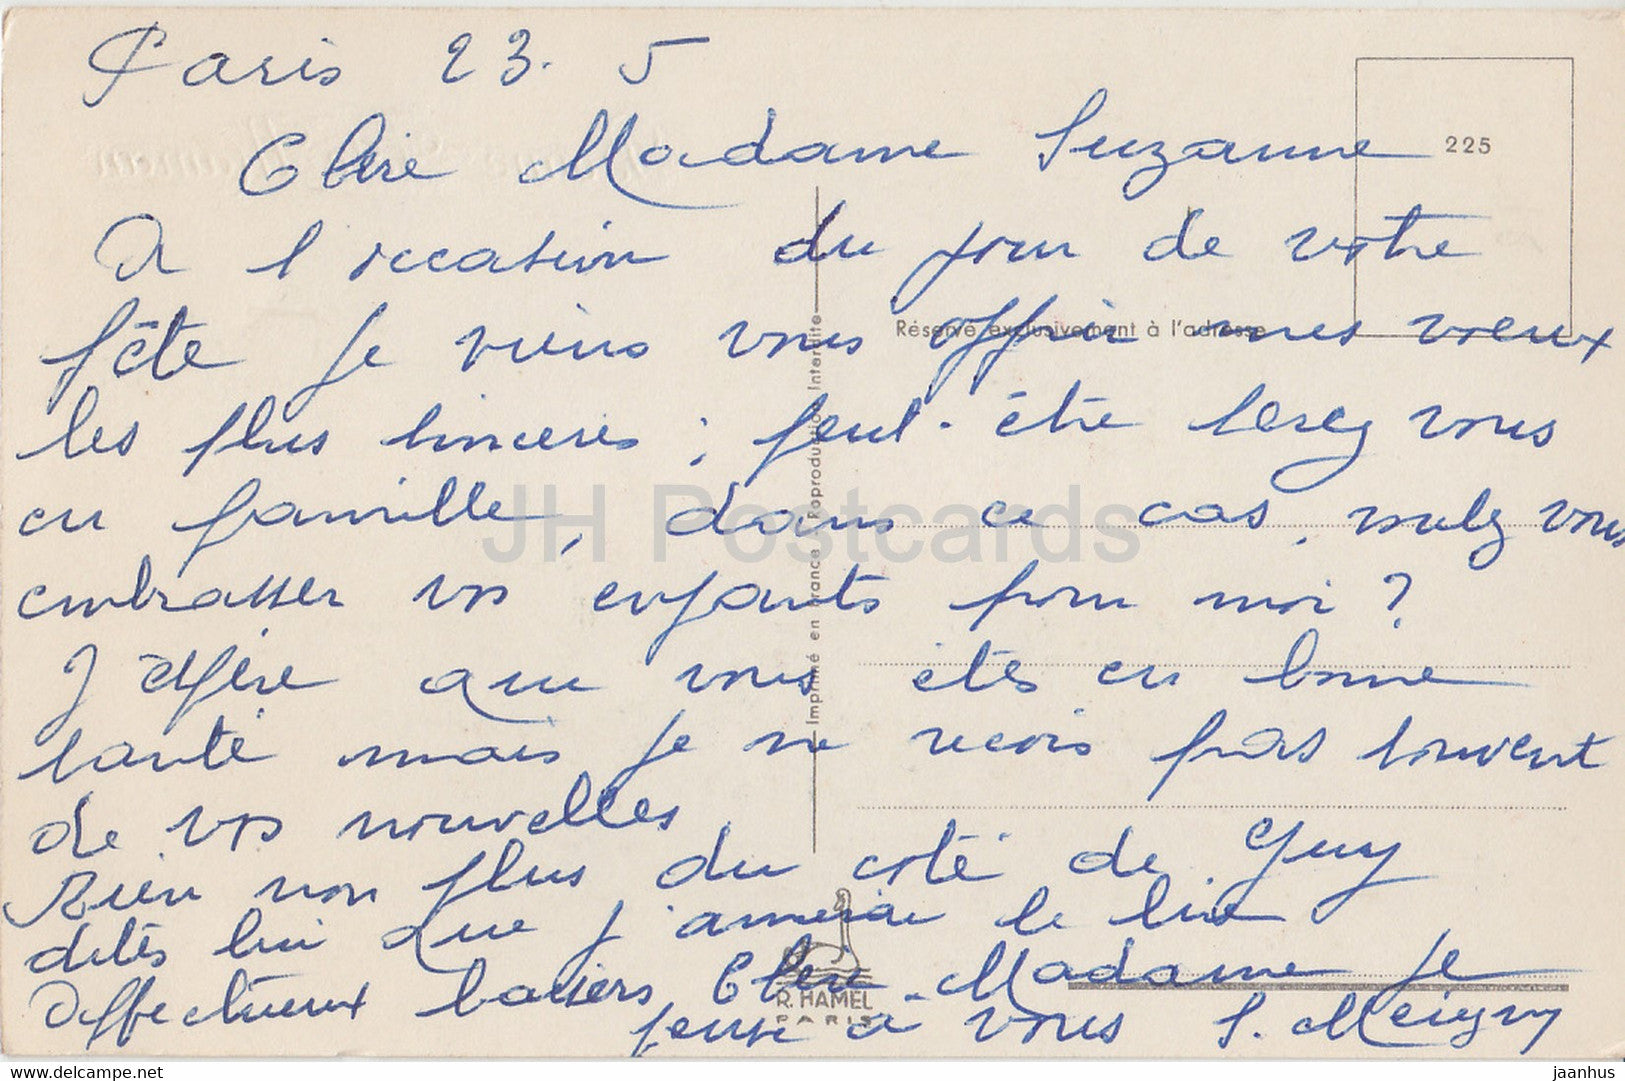 Paris 23. 5
Chère Madame Suzanne
225
A l'occasion du jour de votre
fête je viens vous offrir mes vœux
Réservé exclusivement à l'adresse
les plus sincères ; peut-être serez vous
en famille, dans ce cas, voulez vous
embrasser vos enfants pour moi ?
J'espère que vous êtes en bonne
santé mais je ne reçois pas souvent
de vos nouvelles
Rien non plus du côté de Guy
dites lui que j'aimerai le lire
Affectueux baisers Chère Madame je
pense à vous S. Meigny
Imprimé en France Reproduction Interdite
R. HAMEL
PARIS
JH Postcards
delcampe.net
jaanhus